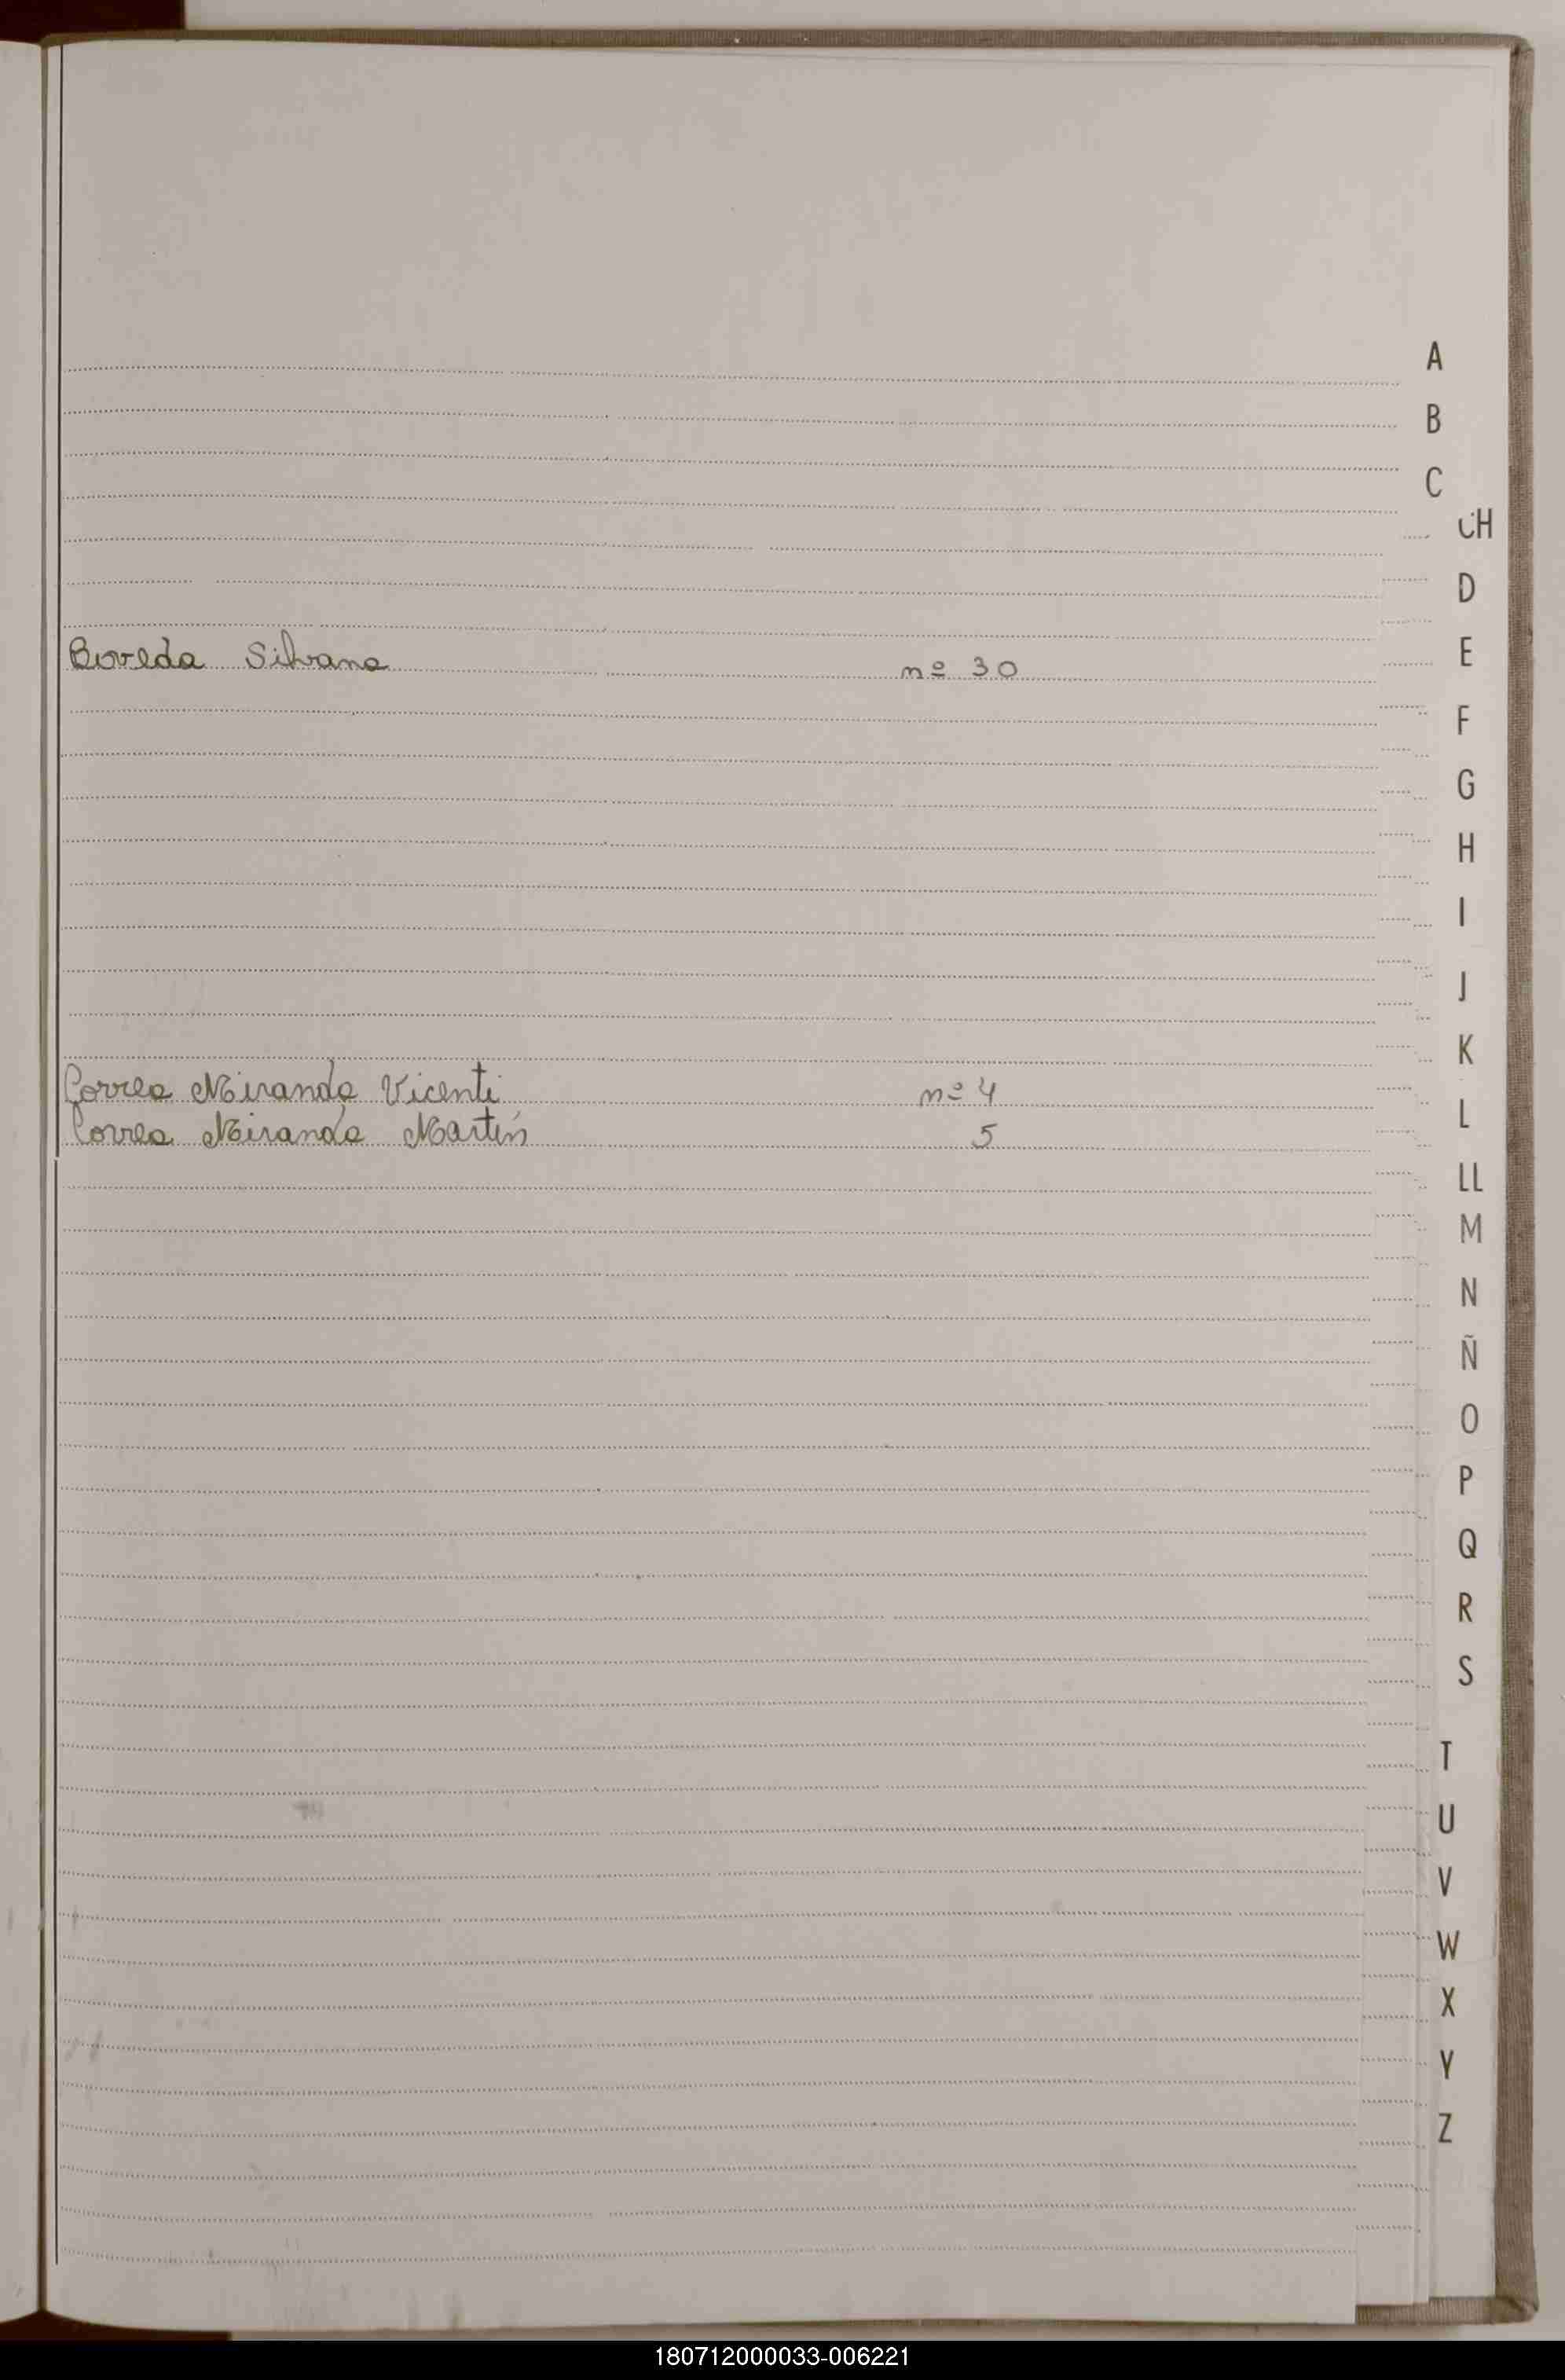 A
B
C
CH
D
Boveda Silvana nº 30
E
F
G
H
I
J
K
Correa Miranda Vicente nº 4
L
Correa Miranda Martín 5
LL
M
N
Ñ
O
P
Q
R
S
T
U
V
W
X
Y
Z
180712000033-006221